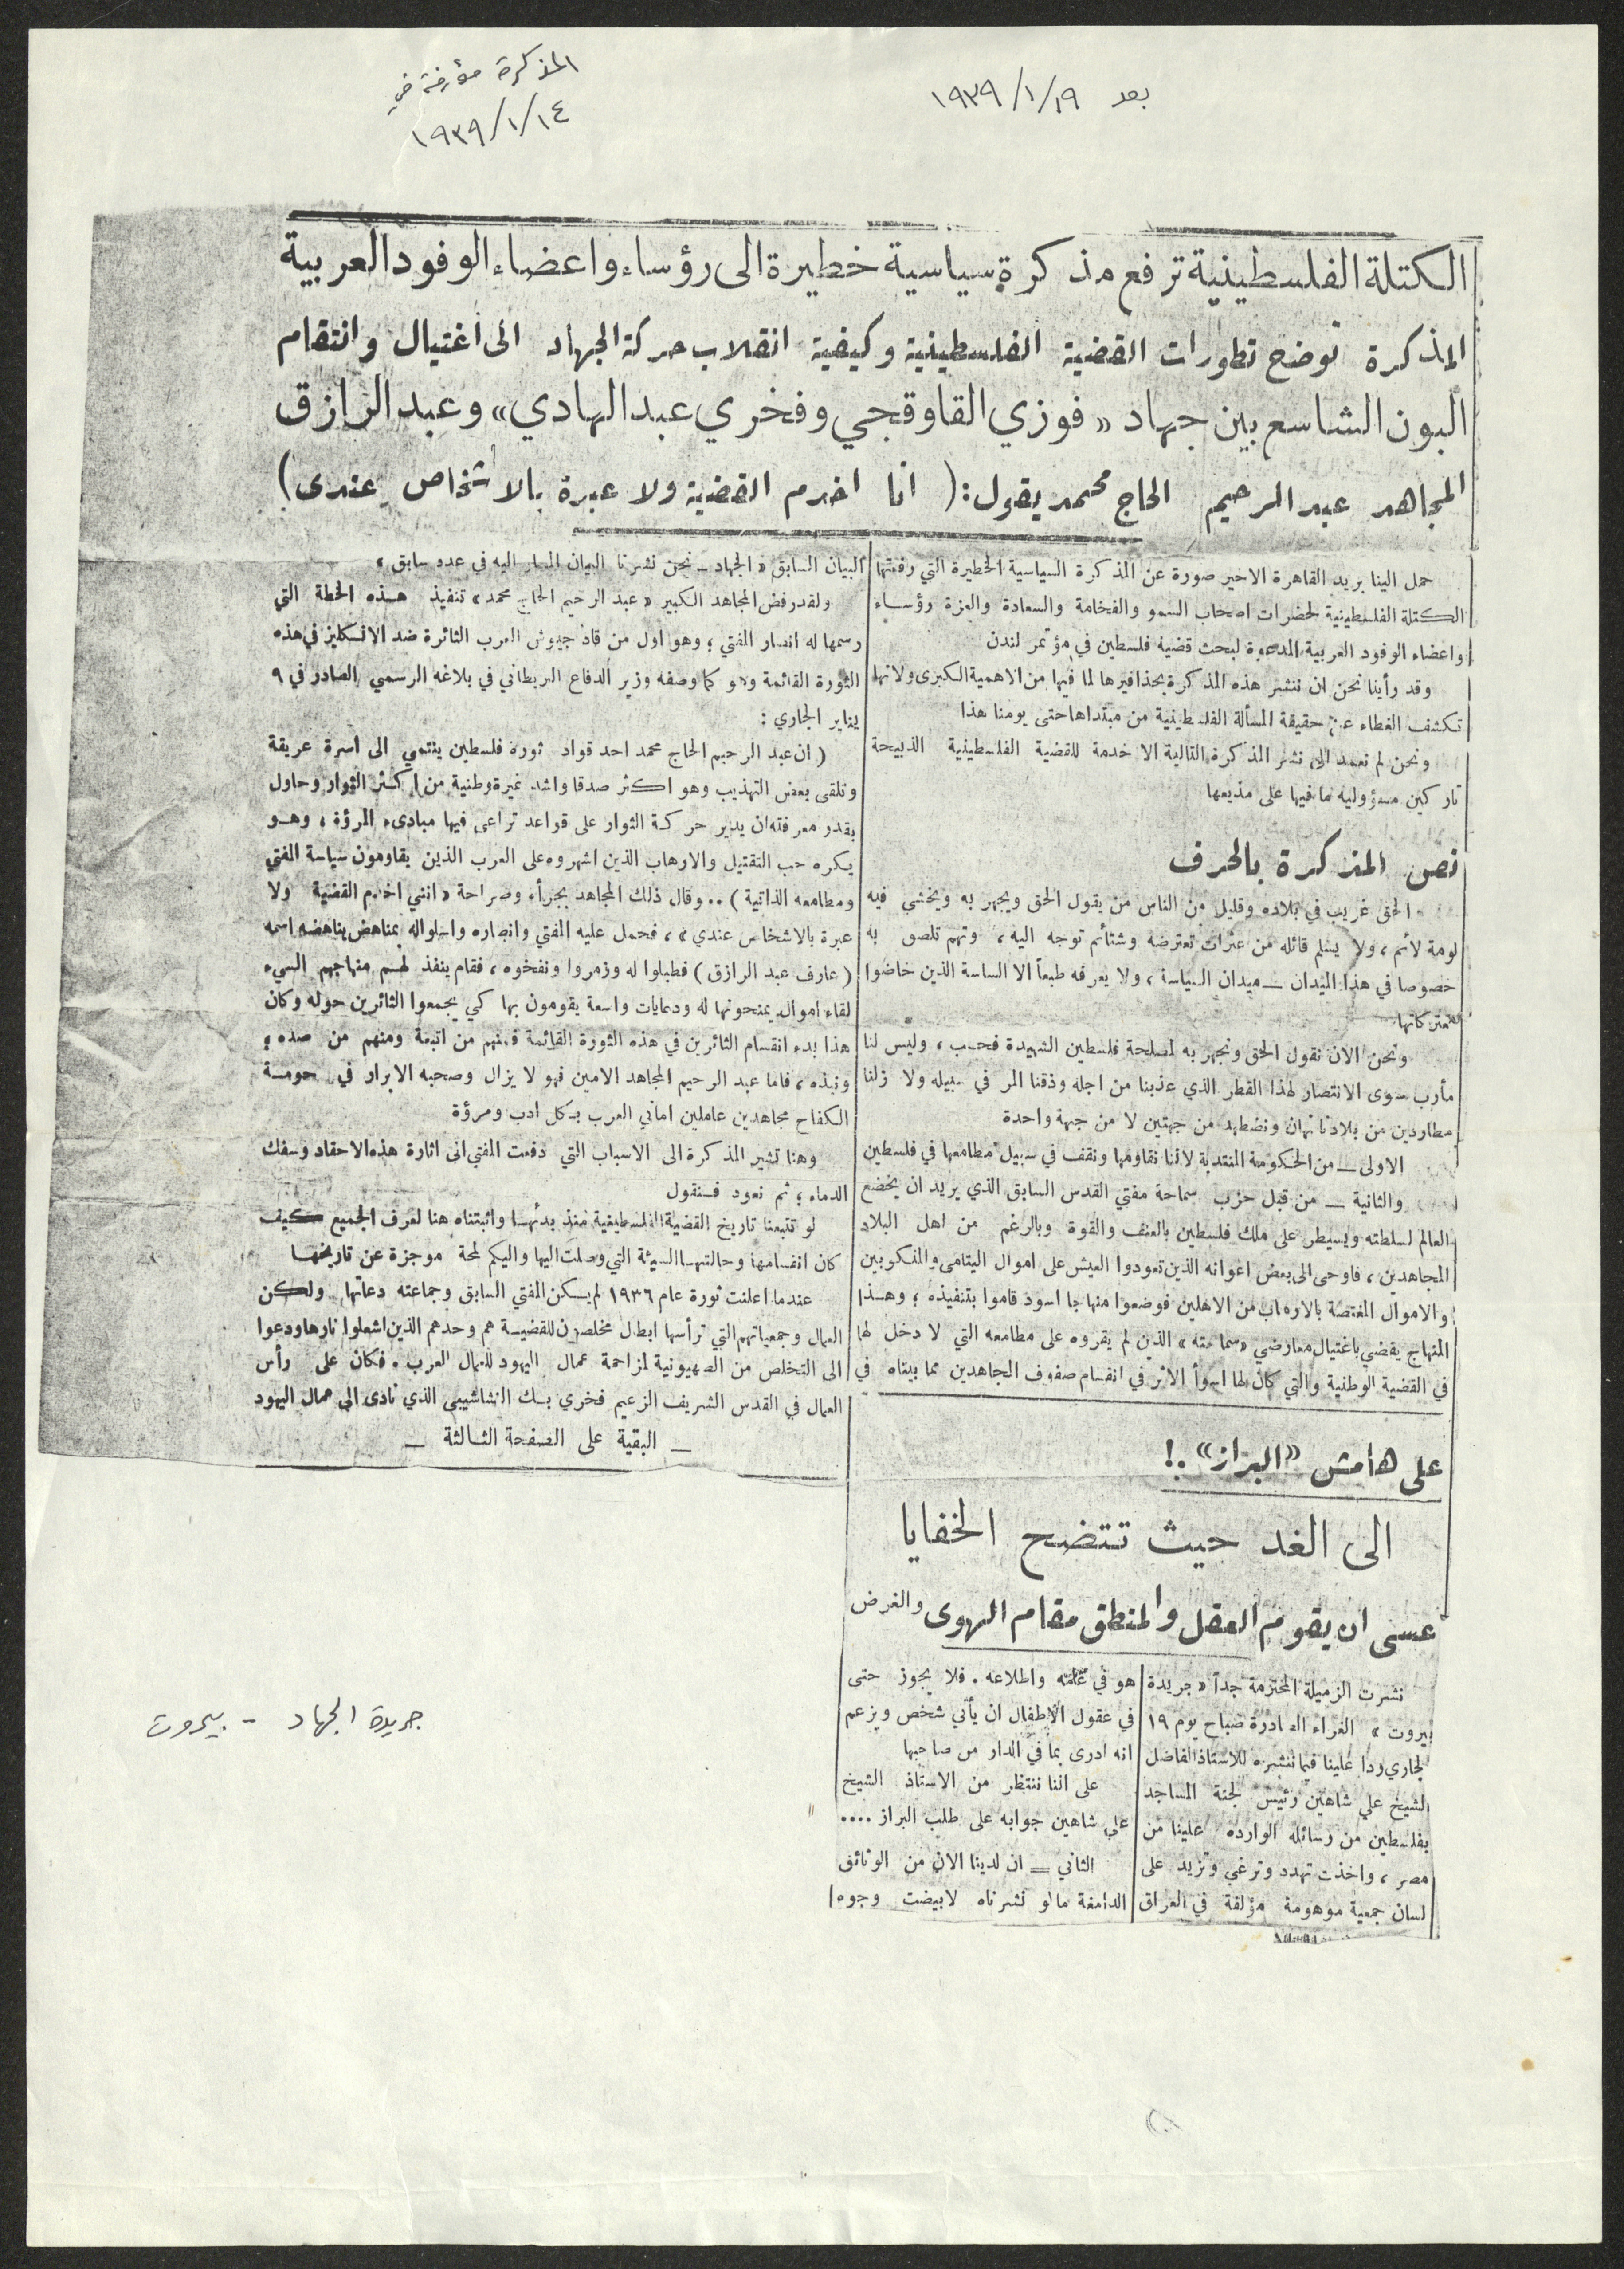 المذكرة مؤرخة في
١٩٣٩/١/١٤
بعد ١٩٣٩/١/١٩
الكتلة الفلسطينية ترفع مذكرة سياسية خطيرة الى رؤساء واعضاء الوفود العربية
المذكرة توضح تطورات القضية الفلسطينية وكيفية انقلاب حركة الجهاد الى اغتيال وانتقام
البون الشاسع بين جهاد «فوزي القاوقجي وفخري عبد الهادي» وعبد الرازق
المجاهد عبد الرحيم الحاج محمد يقول: (انا اخدم القضية ولا عبرة بالاشخاص عندى)
حمل الينا بريد القاهرة الاخير صورة عن المذكرة السياسية الخطيرة التي رفعتها
الكتلة الفلسطينية لحضرات اصحاب السمو والفخامة والسعادة والعزة رؤساء
واعضاء الوفود العربية المدعوة لبحث قضية فلسطين في مؤتمر لندن
وقد رأينا نحن ان ننشر هذه المذكرة بحذافيرها لما فيها من الاهمية الكبرى ولانها
تكشف الغطاء عن حقيقة المسألة الفلسطينية من مبتداها حتى يومنا هذا
ونحن لم نعمد الى نشر المذكرة التالية الا خدمة للقضية الفلسطينية الذبيحة
تاركين مسؤولية ما فيها على مذيعها
نص المذكرة بالحرف
الحق غريب في بلاده وقليل من الناس من يقول الحق ويجهر به ويخشي فيه
لومة لائم، ولا يسلم قائله من عثرات تعترضه وشتائم توجه اليه، وتهم تلصق به
خصوصا في هذا الميدان ــ ميدان السياسة، ولا يعرفه طبعاً الا الساسة الذين خاضوا
معتركاتها
ونحن الان نقول الحق ونجهر به لمصلحة فلسطين الشهيدة فحسب، وليس لنا
مأرب سوى الانتصار لهذا القطر الذي عذبنا من اجله وذقنا المر في سبيله ولا زلنا
مطاردين من بلادنا نهان ونضطهد من جهتين لا من جهة واحدة
الاولى ــ من الحكومة المنتدبة لاننا نقاومها ونقف في سبيل مطامعها في فلسطين
والثانية ــ من قبل حزب سماحة مفتي القدس السابق الذي يريد ان يخضع
العالم لسلطته ويسيطر على ملك فلسطين بالعنف والقوة وبالرغم من اهل البلاد
المجاهدين، فاوحى الى بعض اعوانه الذين تعودوا العيش على اموال اليتامى والمنكوبين
والاموال المغتصبة بالارهاب من الاهلين فوضعوا منهاجا اسود قاموا بتنفيذه؛ وهذا
المنهاج يقضي باغتيال معارضي «سماحته» الذين لم يقروه على مطامعه التي لا دخل لها
في القضية الوطنية والتي كان لها اسوأ الاثر في انقسام صفوف المجاهدين مما بيناه في
البيان السابق «الجهاد ــ نحن نشرنا البيان المشار اليه في عدد سابق»
ولقد رفض المجاهد الكبير «عبد الرحيم الحاج محمد» تنفيذ هذه الخطة التي
رسمها له انصار المفتي؛ وهو اول من قاد جيوش العرب الثائرة ضد الانكليز في هذه
الثورة القائمة وهو كما وصفه وزير الدفاع البريطاني في بلاغه الرسمي الصادر في ٩
يناير الجاري:
(ان عبد الرحيم الحاج محمد احد قواد ثورة فلسطين ينتمي الى اسرة عريقة
وتلقى بعض التهذيب وهو اكثر صدقا واشد غيرة وطنية من اكثر الثوار وحاول
بقدر معرفته ان يدير حركة الثوار على قواعد تراعى فيها مبادىء المرؤة، وهو
يكره حب التقتيل والارهاب الذين اشهروه على العرب الذين يقاومون سياسة المفتي
ومطامعه الذاتية) .. وقال ذلك المجاهد بجرأة وصراحة «انني اخدم القضية ولا
عبرة بالاشخاص عندي»، فحمل عليه المفتي وانصاره واستبدلوا به بمناهض يناهضه اسمه
(عارف عبد الرازق) فطبلوا له وزمروا ونفخوه، فقام ينفذ لهم منهاجهم السيء
لقاء اموال يمنحونها له ودعايات واسعة يقومون بها كي يجمعوا الثائرين حوله وكان
هذا بدء انقسام الثائرين في هذه الثورة القائمة فمنهم من اتبعه ومنهم من صده؛
ونبذه، فاما عبد الرحيم المجاهد الامين فهو لا يزال وصحبه الابرار في حومة
الكفاح مجاهدين عاملين اماني العرب بكل ادب ومرؤة
وهنا تشير المذكرة الى الاسباب التي دفعت المفتي الى اثارة هذه الاحقاد وسفك
الدماء؛ ثم نعود فنقول
لو تتبعنا تاريخ القضية الفلسطينية منذ بدئها واثبتناه هنا لعرف الجميع كيف
كان انقسامها وحالتها السيئة التي وصلت اليها واليكم لمحة موجزة عن تاريخها
عندما اعلنت ثورة عام ١٩٣٦ لم يكن المفتي السابق وجماعته دعاتها ولكن
العمال وجمعياتهم التي ترأسها ابطال مخلصون للقضية هم وحدهم الذين اشعلوا نارها ودعوا
الى التخلص من الصهيونية لمزاحمة عمال اليهود للعمال العرب. فكان على رأس
العمال في القدس الشريف الزعيم فخري بك النشاشيبي الذي نادى الى عمال اليهود
ــ البقية على الصفحة الثالثة ــ
على هامش «البراز» .!
الى الغد حيث تتضح الخفايا
عسى ان يقوم العقل والمنطق مقام الهوى والغرض
نشرت الزميلة المحترمة جداً «جريدة
بيروت» الغراء الصادرة صباح يوم ١٩
لجاري ردا علينا فيما ننشره للاستاذ الفاضل
الشيخ علي شاهين رئيس لجنة المساجد
بفلسطين من رسائله الواردة علينا من
مصر، واخذت تهدد وترغي وتزيد على
لسان جمعية موهومة مؤلفة في العراق
هو في علمه واطلاعه. فلا يجوز حتى
في عقول الاطفال ان يأتي شخص ويزعم
انه ادرى بما في الدار من صاحبها
على اننا ننتظر من الاستاذ الشيخ
علي شاهين جوابه على طلب البراز ....
الثاني ــ ان لدينا الان من الوثائق
الدامغة ما لو نشرناه لابيضت وجوه
جريدة الجهاد - بيروت